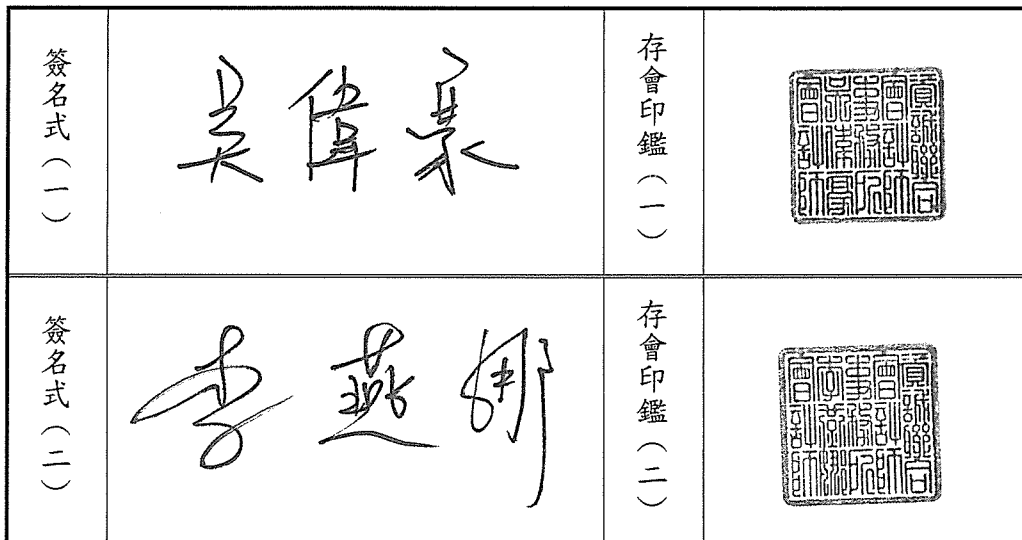 簽名式（一）
吳偉豪
存會印鑑（一）
資誠聯合
會計師
事務所
吳偉豪
會計師
簽名式（二）
李燕娜
存會印鑑（二）
資誠聯合
會計師
事務所
李燕娜
會計師